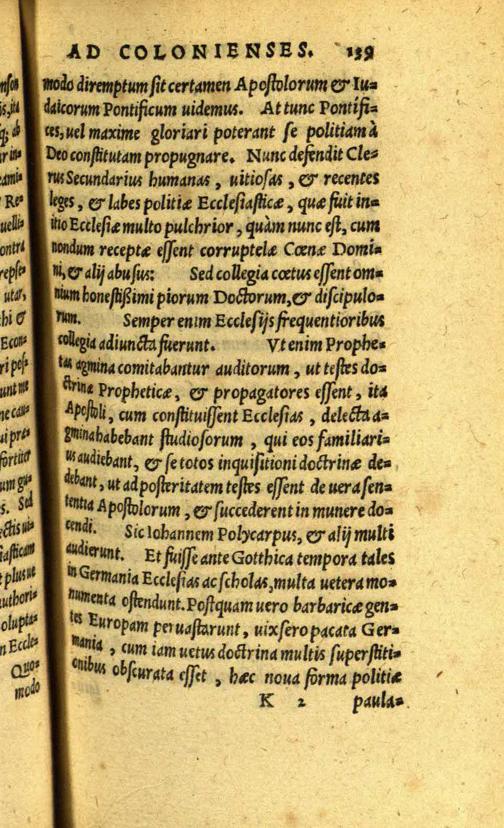 AD COLONIENSES. 139
modo diremptum sit certamen Apostolorum & Iu-
daicorum Pontificum uidemus. At tunc Pontifi-
ces, uel maxime gloriari poterant se politiam à
Deo constitutam propugnare. Nunc defendit Cle-
rus Secundarius humanas, uitiosas, & recentes
leges, & labes politiæ Ecclesiasticæ, quæ fuit in-
itio Ecclesiæ multo pulchrior, quàm nunc est, cum
nondum receptæ essent corruptelæ Cœnæ Domi-
ni, & alij abusus: Sed collegia cœtus essent om-
nium honestißimi piorum Doctorum, & discipulo-
rum. Semper enim Ecclesijs frequentioribus
collegia adiuncta fuerunt. Vt enim Prophe-
tas agmina comitabantur auditorum, ut testes do-
ctrinæ Propheticæ, & propagatores essent, ita
Apostoli, cum constituissent Ecclesias, delecta a-
gmina habebant studiosorum, qui eos familiari-
us audiebant, & se totos inquisitioni doctrinæ de-
debant, ut ad posteritatem testes essent de uera sen-
tentia Apostolorum, & succederent in munere do-
cendi. Sic Iohannem Polycarpus, & alij multi
audierunt. Et fuisse ante Gotthica tempora tales
in Germania Ecclesias ac scholas, multa uetera mo-
numenta ostendunt. Postquam uero barbaricæ gen-
tes Europam peruastarunt, uix sero pacata Ger-
mania, cum iam uetus doctrina multis superstiti-
onibus obscurata esset, hæc noua forma politiæ
K 2 paula-